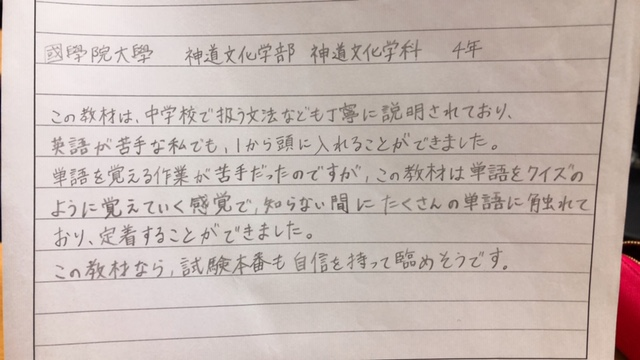 國學院大學 神道文化学部 神道文化学科 4年
この教材は、中学校で扱う文法なども丁寧に説明されており、
英語が苦手な私でも、1から頭に入れることができました。
単語を覚える作業が苦手だったのですが、この教材は単語をクイズの
ように覚えていく感覚で、知らない間にたくさんの単語に触れて
おり、定着することができました。
この教材なら、試験本番も自信を持って臨めそうです。